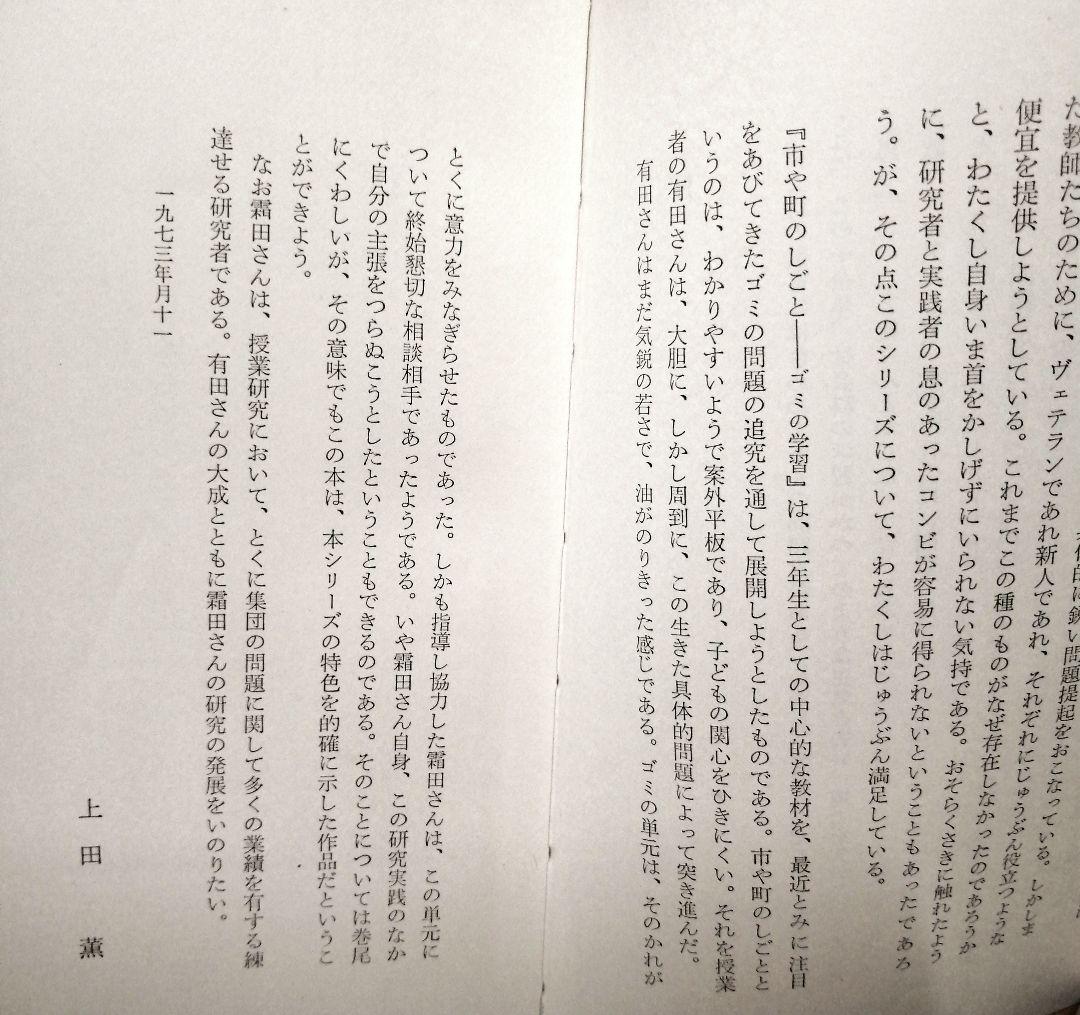 鋭い問題提起をおこなっている。しかしま
た教師たちのために、ヴェテランであれ新人であれ、それぞれにじゅうぶん役立つような
便宜を提供しようとしている。これまでこの種のものがなぜ存在しなかったのであろうか
と、わたくし自身いま首をかしげずにいられない気持である。おそらくさきに触れたよう
に、研究者と実践者の息のあったコンビが容易に得られないということもあったであろ
う。が、その点このシリーズについて、わたくしはじゅうぶん満足している。
『市や町のしごと――ゴミの学習』は、三年生としての中心的な教材を、最近とみに注目
をあびてきたゴミの問題の追究を通して展開しようとしたものである。市や町のしごとと
いうのは、わかりやすいようで案外平板であり、子どもの関心をひきにくい。それを授業
者の有田さんは、大胆に、しかし周到に、この生きた具体的問題によって突き進んだ。
有田さんはまだ気鋭の若さで、油がのりきった感じである。ゴミの単元は、そのかれが
とくに意力をみなぎらせたものであった。しかも指導し協力した霜田さんは、この単元に
ついて終始懇切な相談相手であったようである。いや霜田さん自身、この研究実践のなか
で自分の主張をつらぬこうとしたということもできるのである。そのことについては巻尾
にくわしいが、その意味でもこの本は、本シリーズの特色を的確に示した作品だというこ
とができよう。
なお霜田さんは、授業研究において、とくに集団の問題に関して多くの業績を有する練
達せる研究者である。有田さんの大成とともに霜田さんの研究の発展をいのりたい。
一九七三年月十一
上田 薫